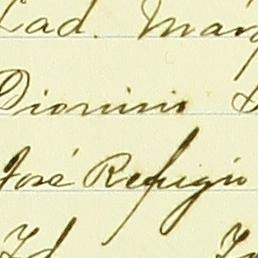 Lad. Marq
Dionisio
José Refugio
Id